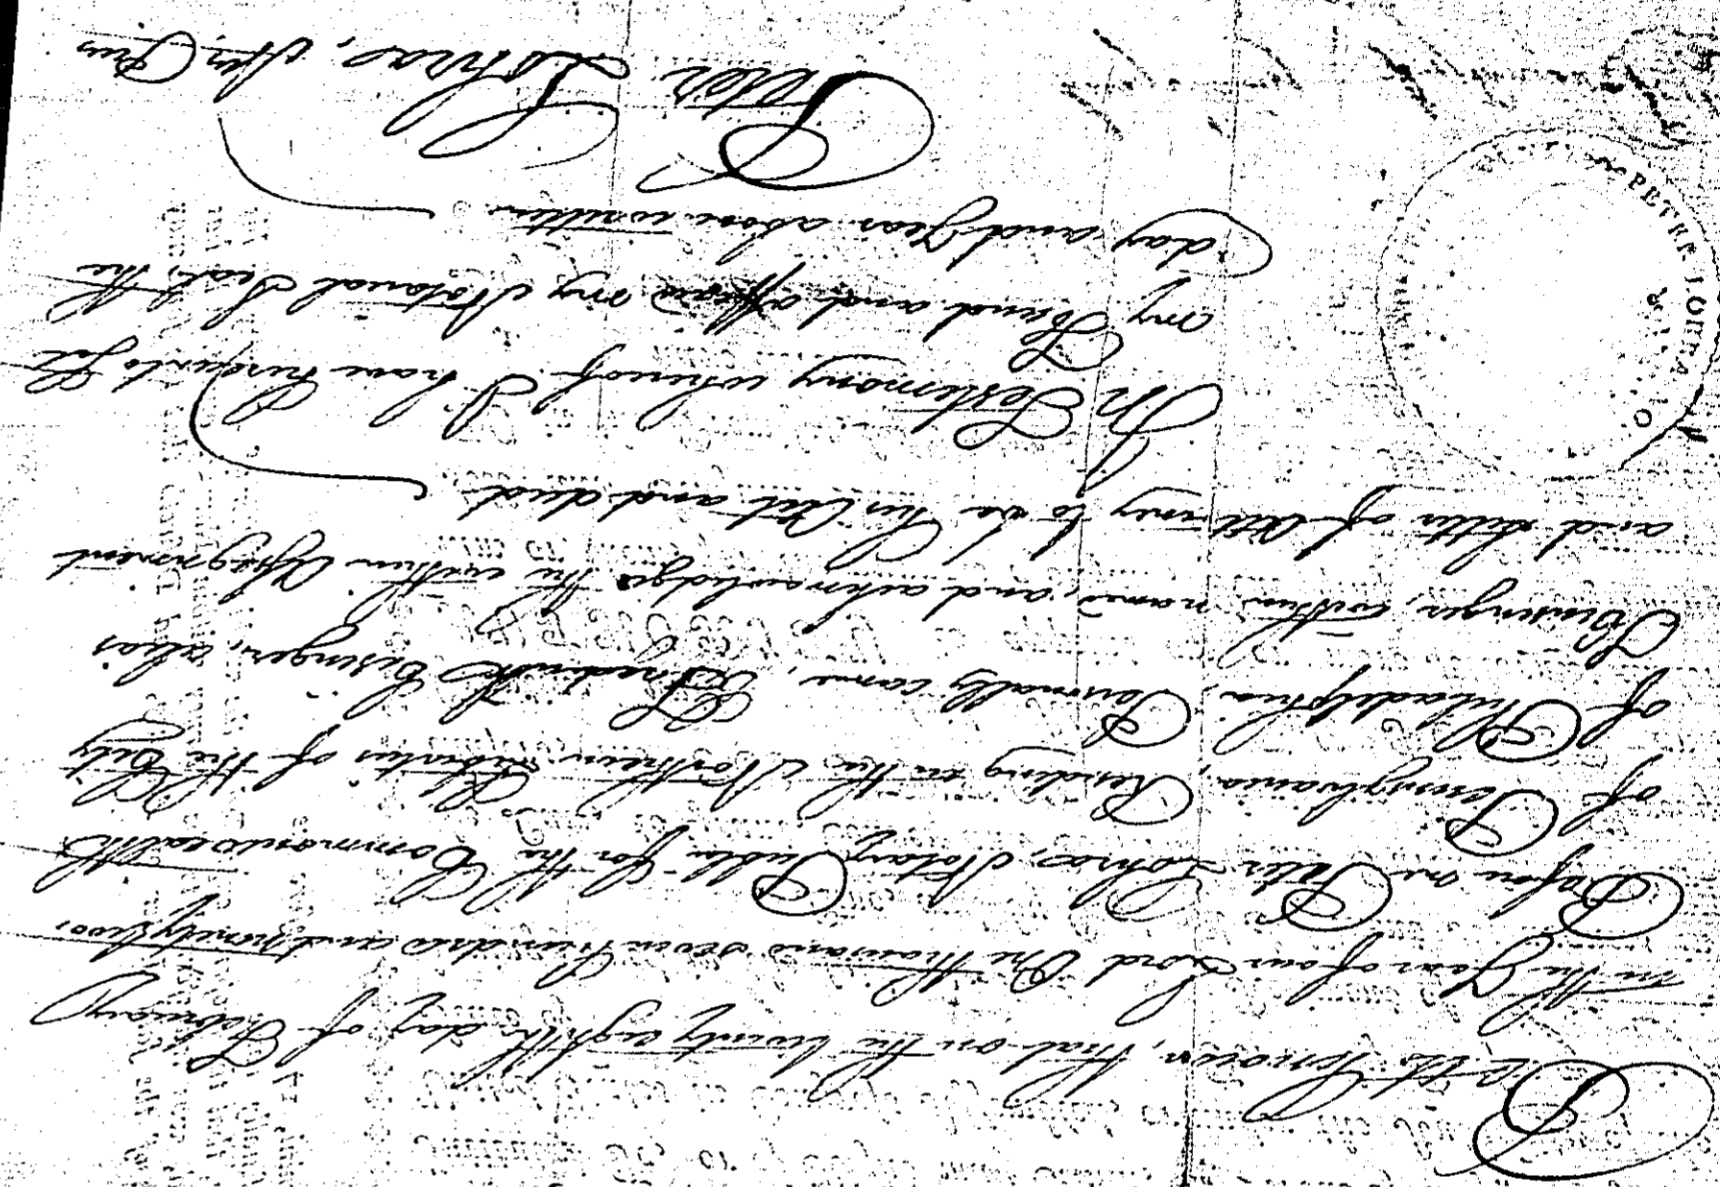 Be it known, that on the twenty eighth day of February
in the Year of our Lord One thousand seven hundred and ninety two.
Before me Peter Lohra, Notary Public for the Commonwealth
of Pennsylvania, Residing in the Northern Liberties of the City
of Philadelphia, Personally came, Frederick Eisinger, alias
Isinger, within named, and acknowledged the within Assignment
and letter of Attorney to be his Act and deed
In Testimony whereof I have hereunto set
my Hand and affixed my Notarial Seal, the
day and Year above written
Peter Lohrae, Not. Pub
PETRE LOHRA